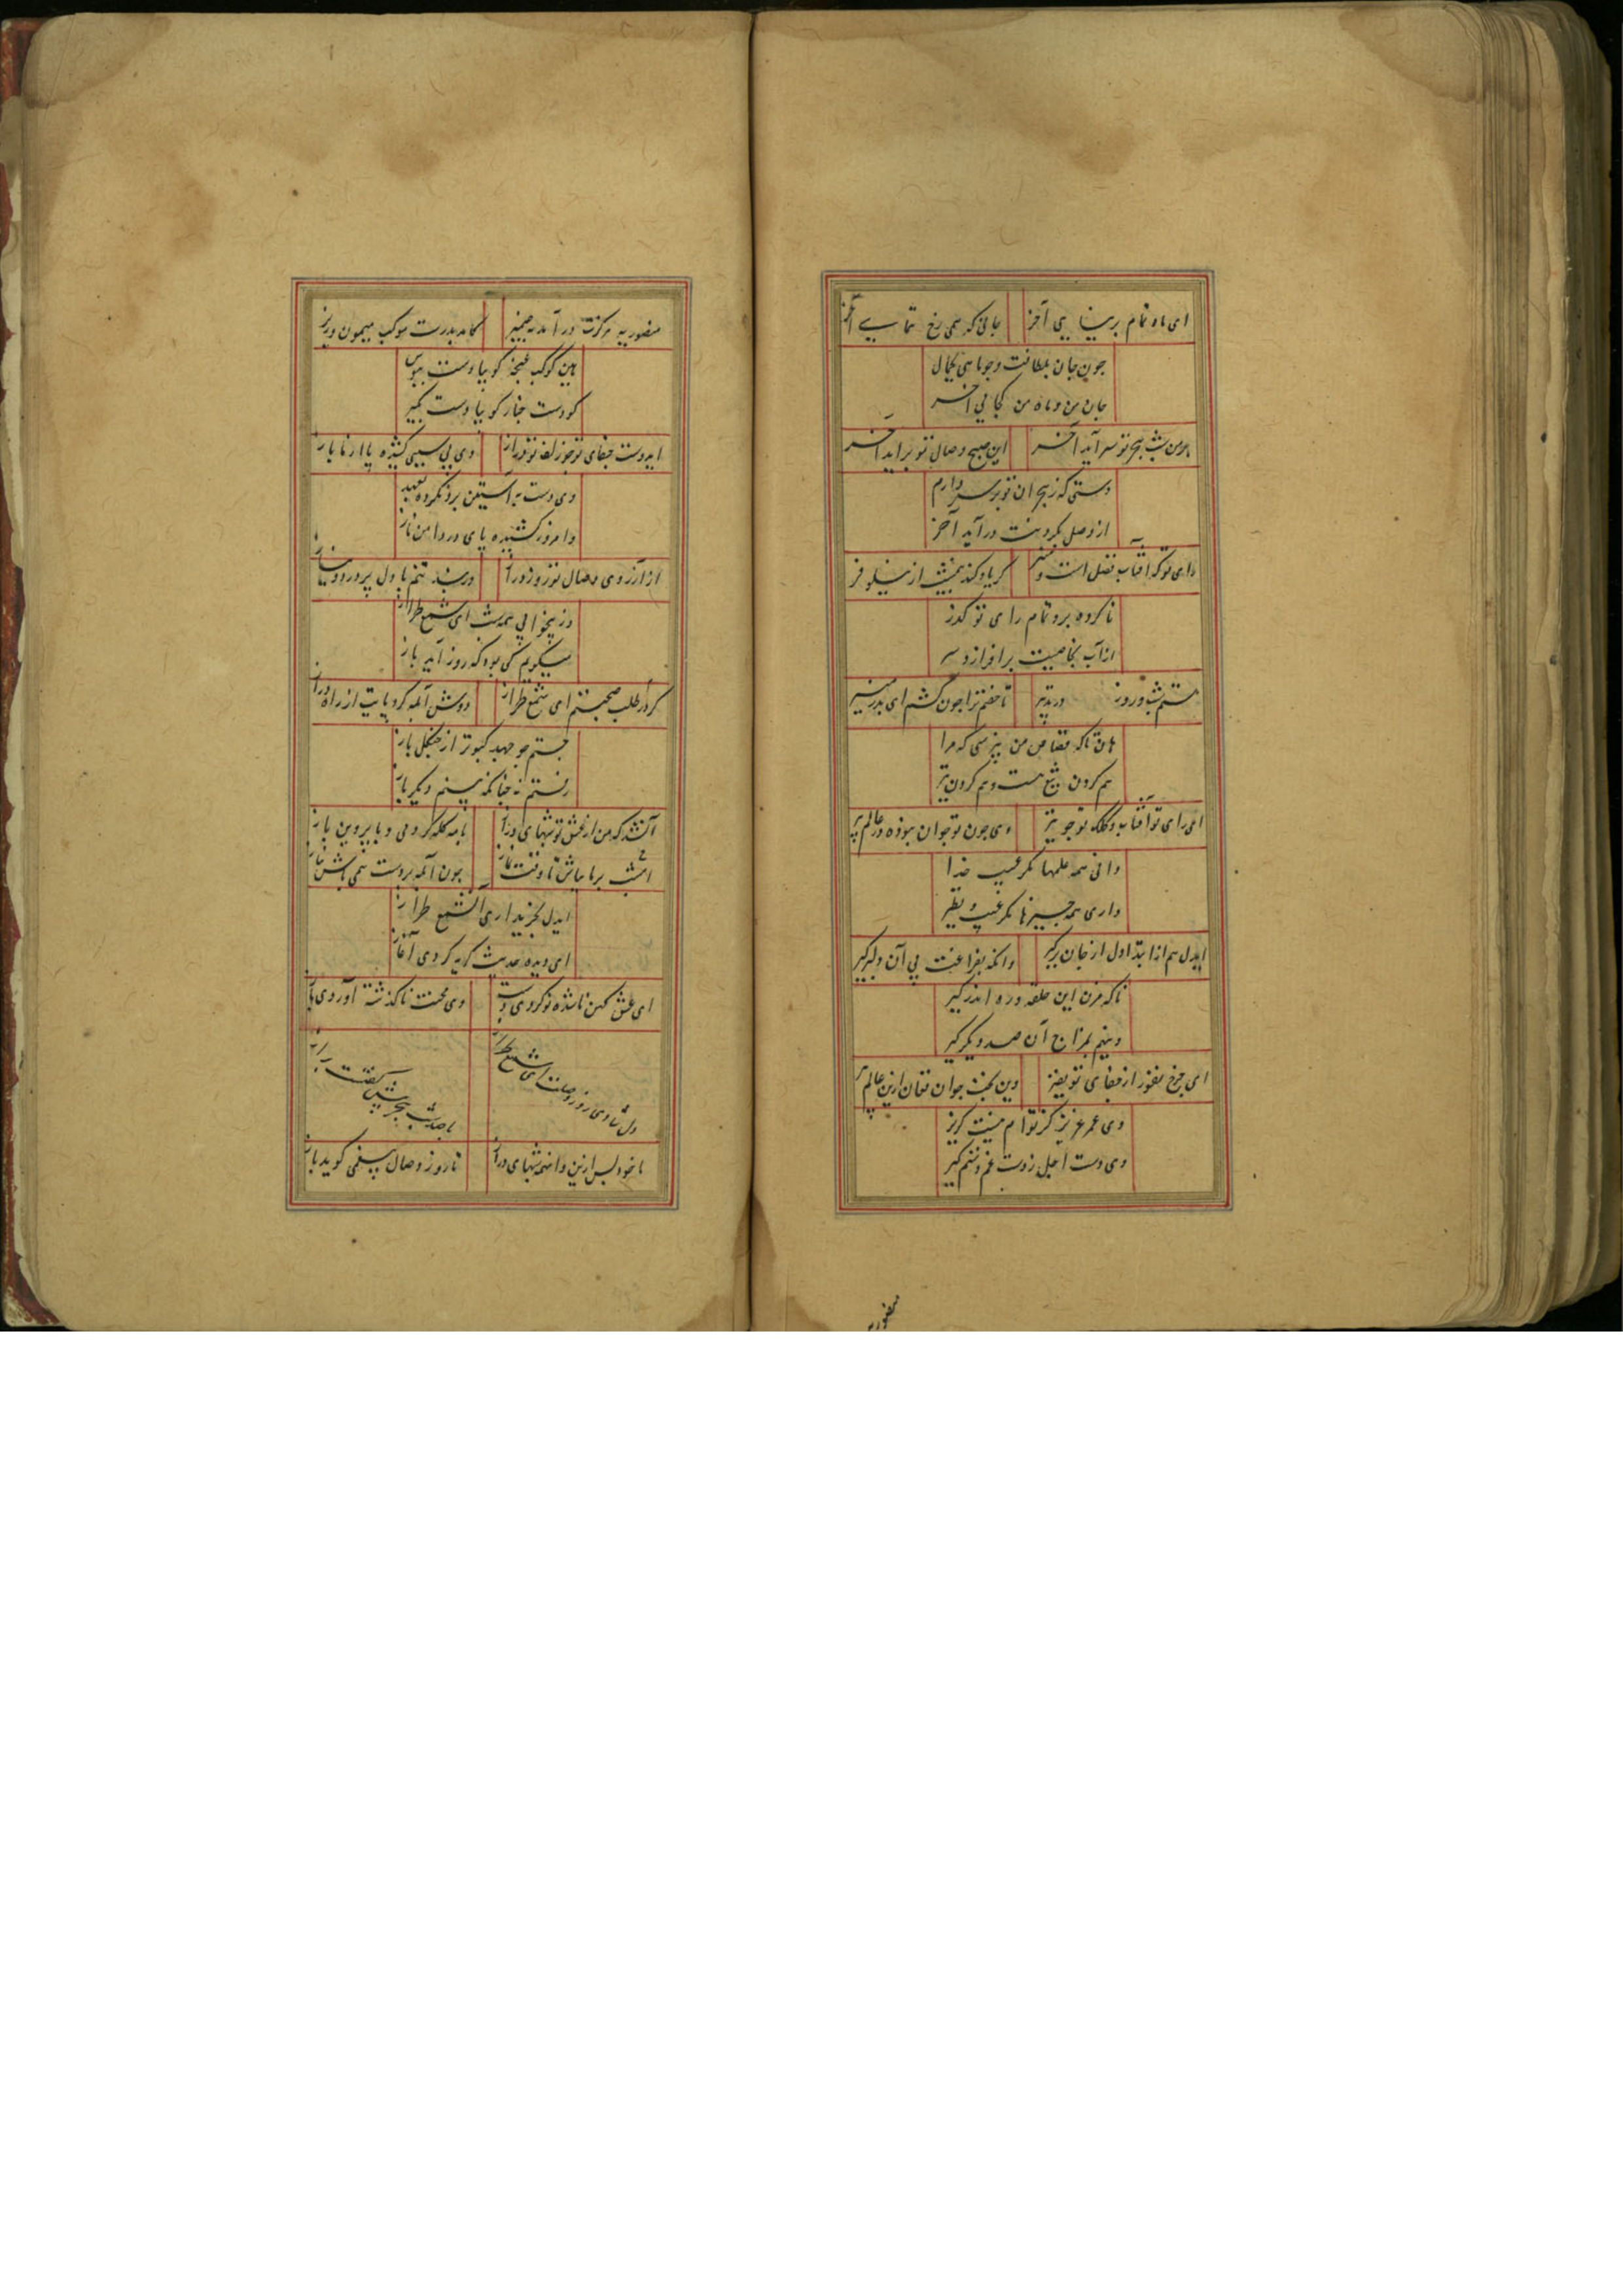 ای ماه تمام برنیایی آخر جایی که همی رخ نمایی آخر
چون جان بلطافت و جو ماهی بکمال
جان من و ماه من کجایی آخر
بر من شب هجر تو سر آید آخر این صبح وصال تو براید آخر
دستی که ز هجران تو بر سر دارم
از وصل بگردنت درآید آخر
رای تو که آفتاب فضل است و هنر گر یاد کند بمثنیش از نیلوفر
ناکرده برو تمام رای تو گذر
از آب بخاصیت برافرازد سر
هستم شب و روز در تدبیر تا خصم ترا چون کشم ای بدر منیر
هان تا که قصاص من نپرسی که مرا
هم گردن تیغ هست و هم گردن تیر
ای رای تو آفتاب و کلک تو چو تیر وی چون تو جوان نبوده در عالم پیر
دانی همه علمها مگر غیب خدا
داری همه چیزها مگر عیب و نظیر
ایدل هم ازابتدا دل از جان برگیر وانگه بفراغت پی آن دلبر گیر
تا که مزن این حلقه و ره اندر گیر
و نیم بمزاج آن صد دیگر گیر
ای چرخ نفور از جفای تو نفیر وین بخت جوان فغان ازین عالم پیر
وی عمر عزیز کز توام نیست گریز
وی دست اجل ز دست غم دستم گیر
منصوریه
منصوریه مرکزت درآمد به ضمیر کامد بدرت موکب میمون وزیر
هین کوکب غنچه گو بیا دست ببوس
کو دست چنار گو بیا دست بگیر
ایدوست جفای تو چو زلف تو دراز وی بی سببی کشیده پا از ما باز
وی دست به آستین برون کرده بعهد
وامروز کشیده پای در دامن ناز
از آرزوی وصال تو روز دراز در بند تنم با دل پر درد و نیاز
وز بیخوابی همه شب ای شمع طراز
میگویم کی بود که روز آید باز
گر در طلب صحبتم ای شمع طراز دوش آبله کرد پایت از راه دراز
جستم چو جهد کبوتر از چنگل باز
رفتم نه چنانکه بینیم دیگر باز
آن شد که من از عشق تو شبهای دراز با مه گله کردمی و با پروین باز
امشب بر ما بباش تا وقت نماز چون آبله بر دست همی باش بناز
ایدل بخریداری آن شمع طراز
ای دیده حدیث گریه کردی آغاز
ای عشق کهن ناشده نو کردی دست وی محنت ناگذشته آوردی باز
دل شادی روز وصلت ای شمع طراز با صد شب هجر بیش گفت براز
تا خود پس ازین و آنهمه شبهای دراز تا روز وصال بیغمی گوید باز